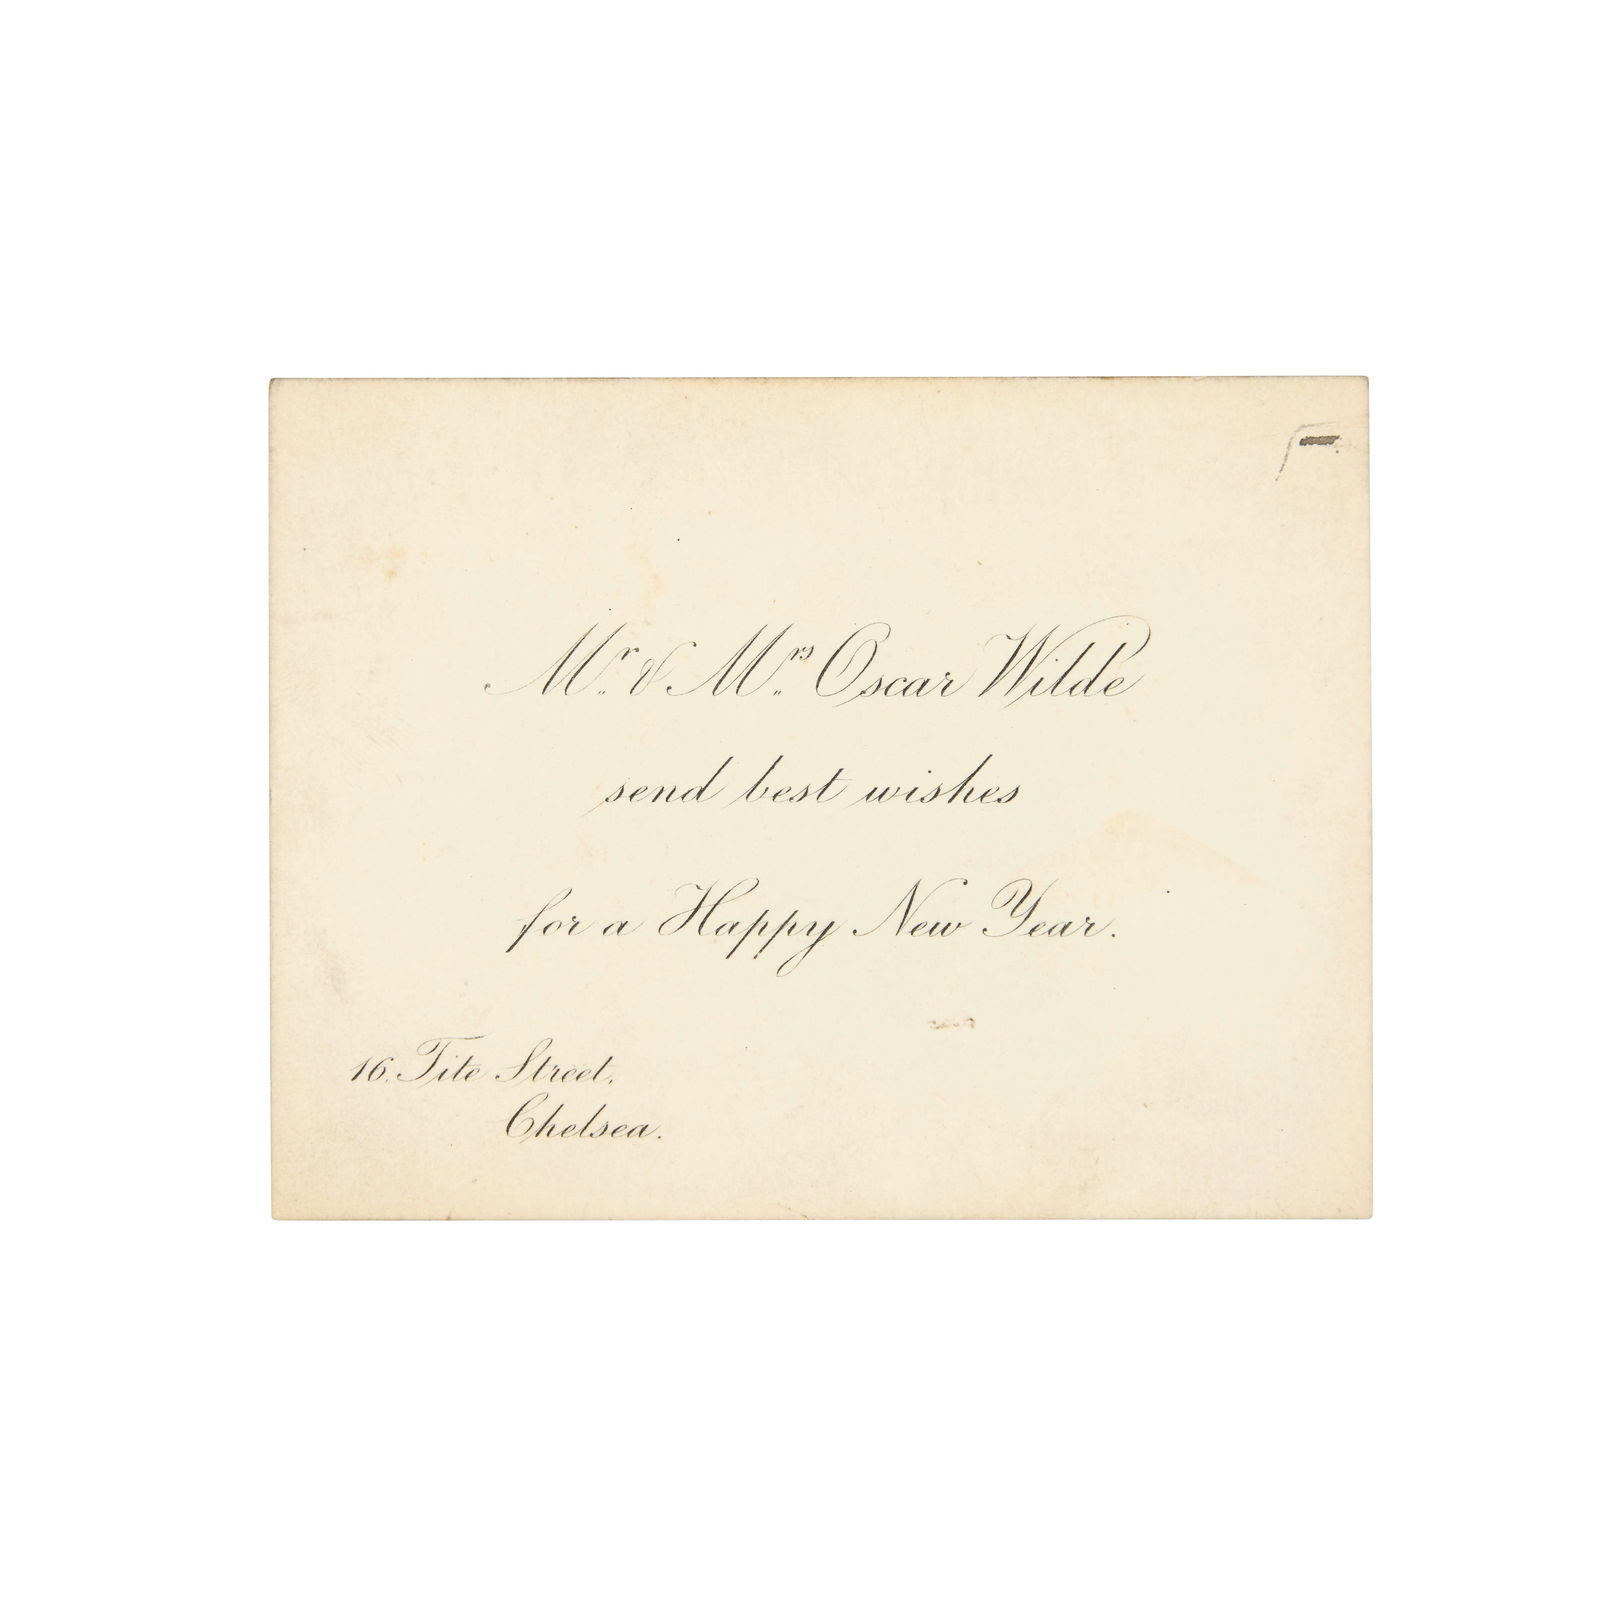 Mr. & Mrs. Oscar Wilde
send best wishes
for a Happy New Year.
16. Tite Street,
Chelsea.